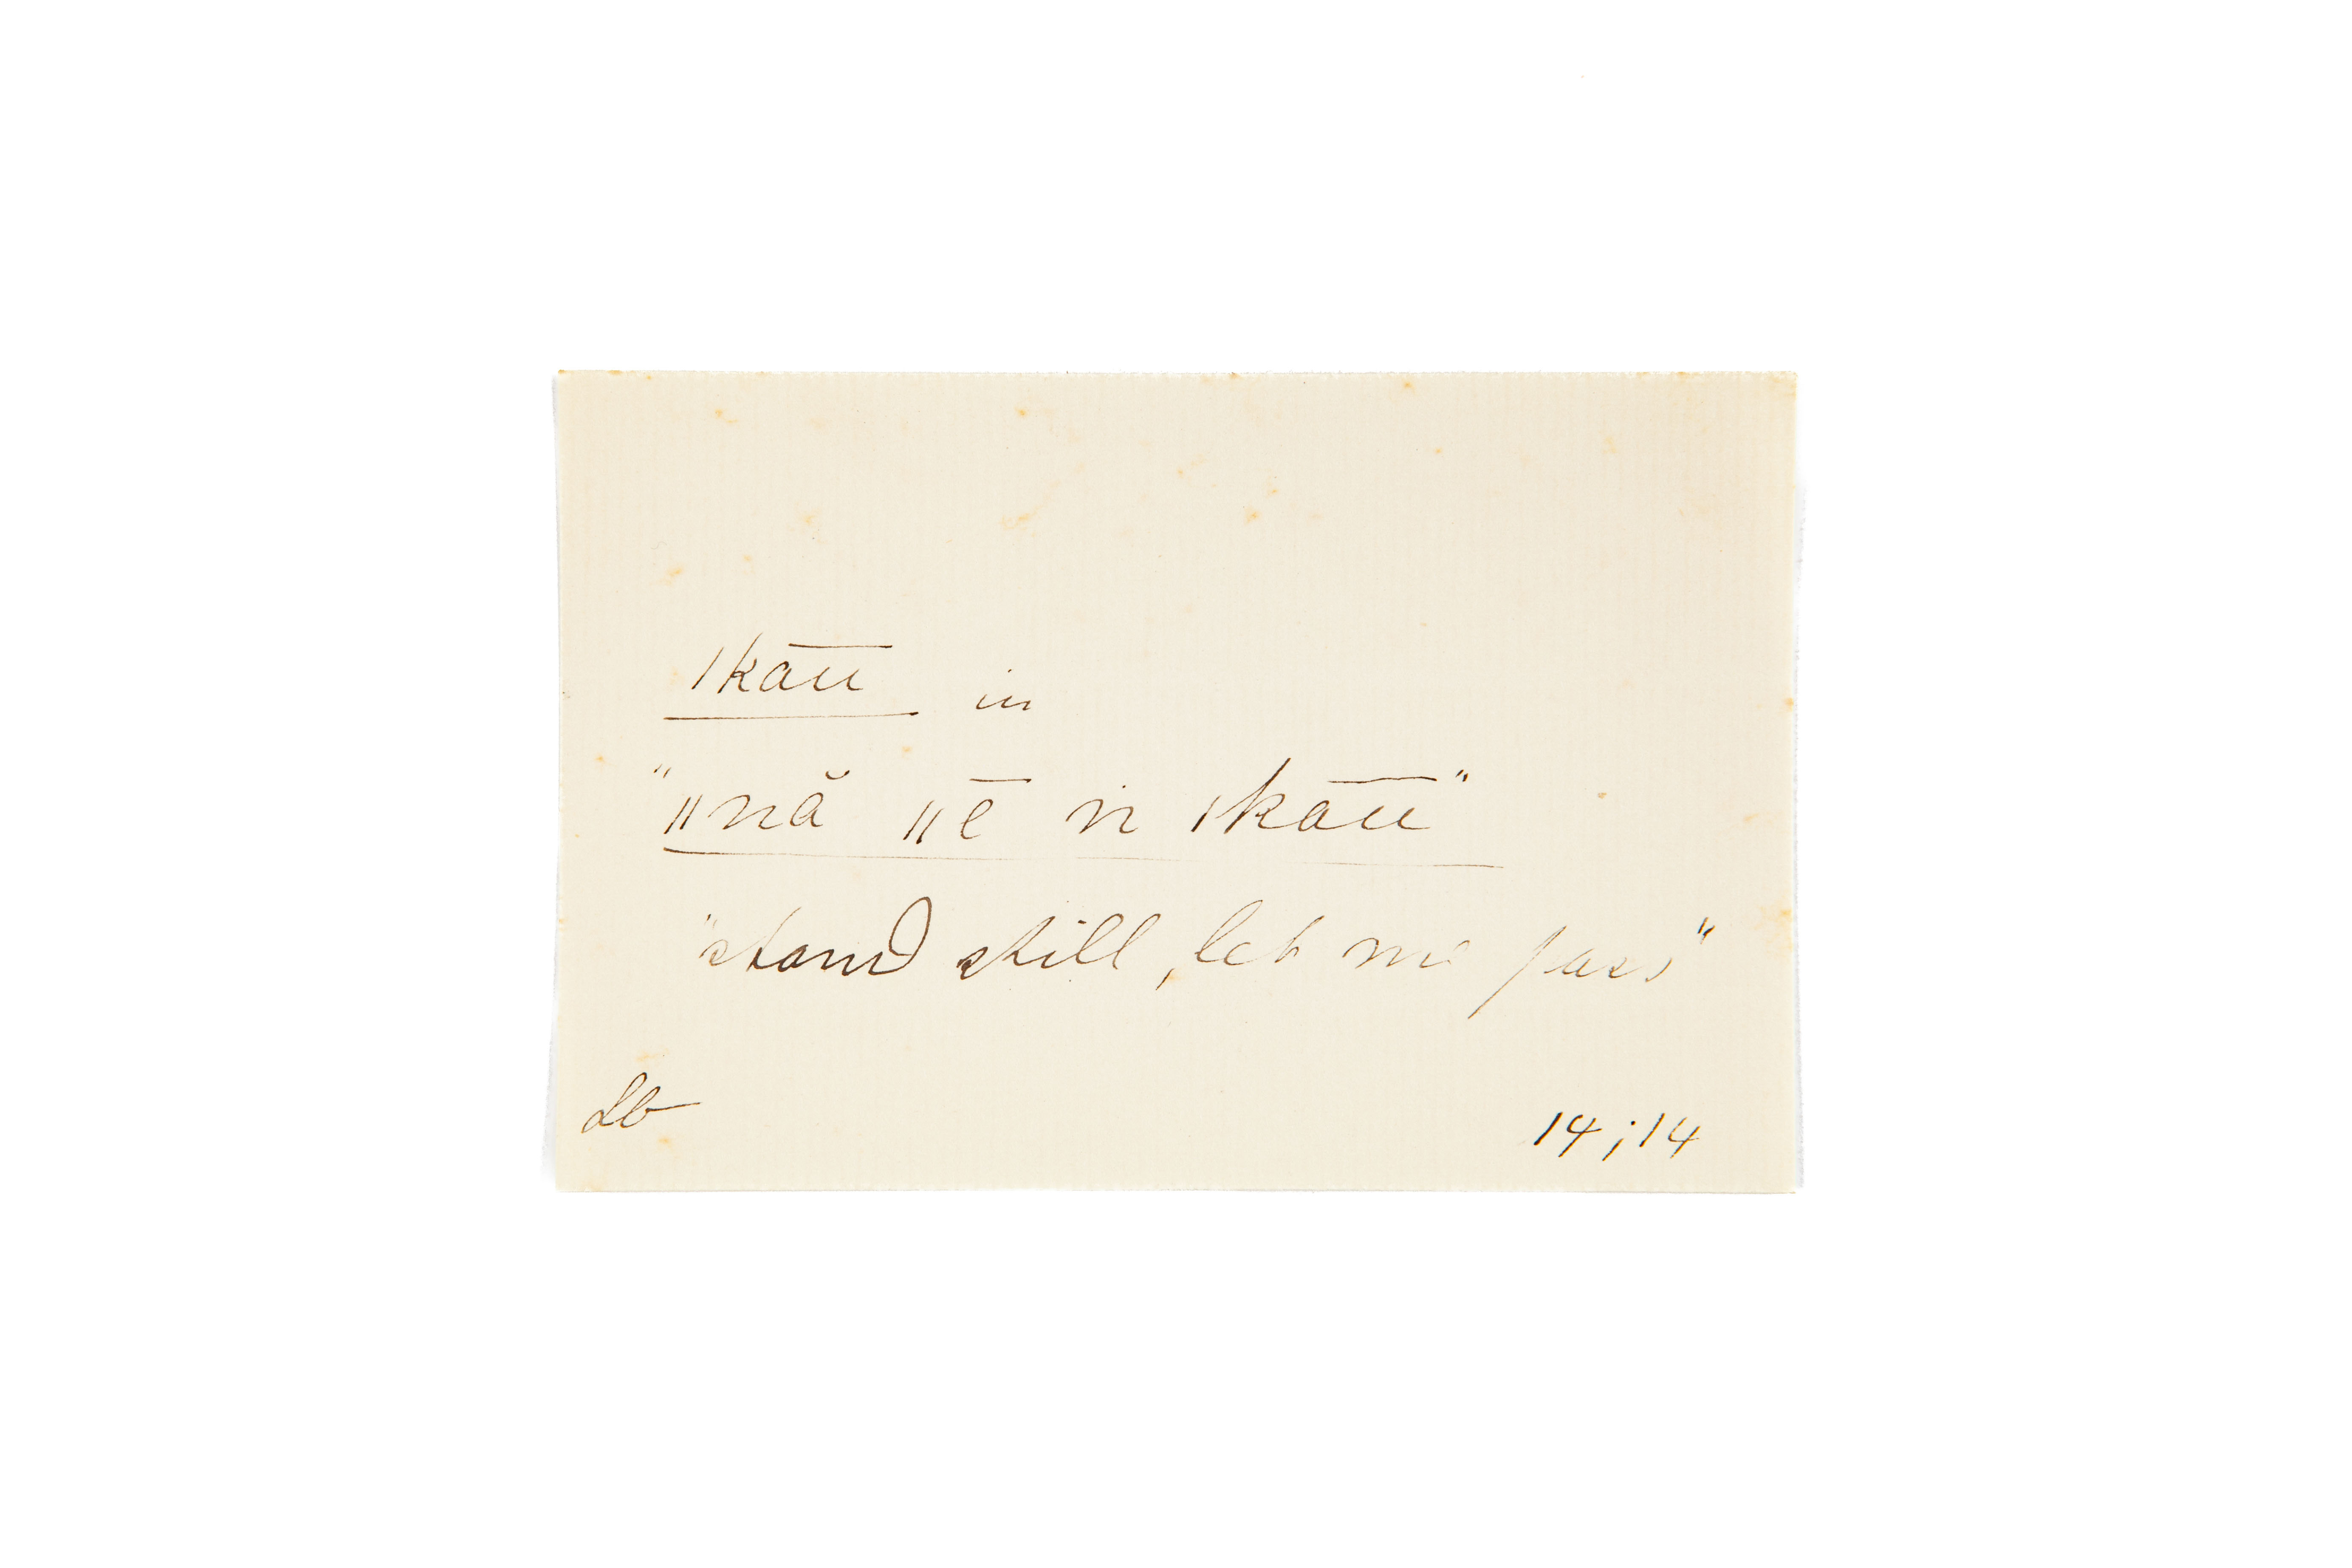 ǀka͞u in
"ǁnă ǁē ṅ ǀka͞u"
"stand still, let me pass"
Lb
14;14